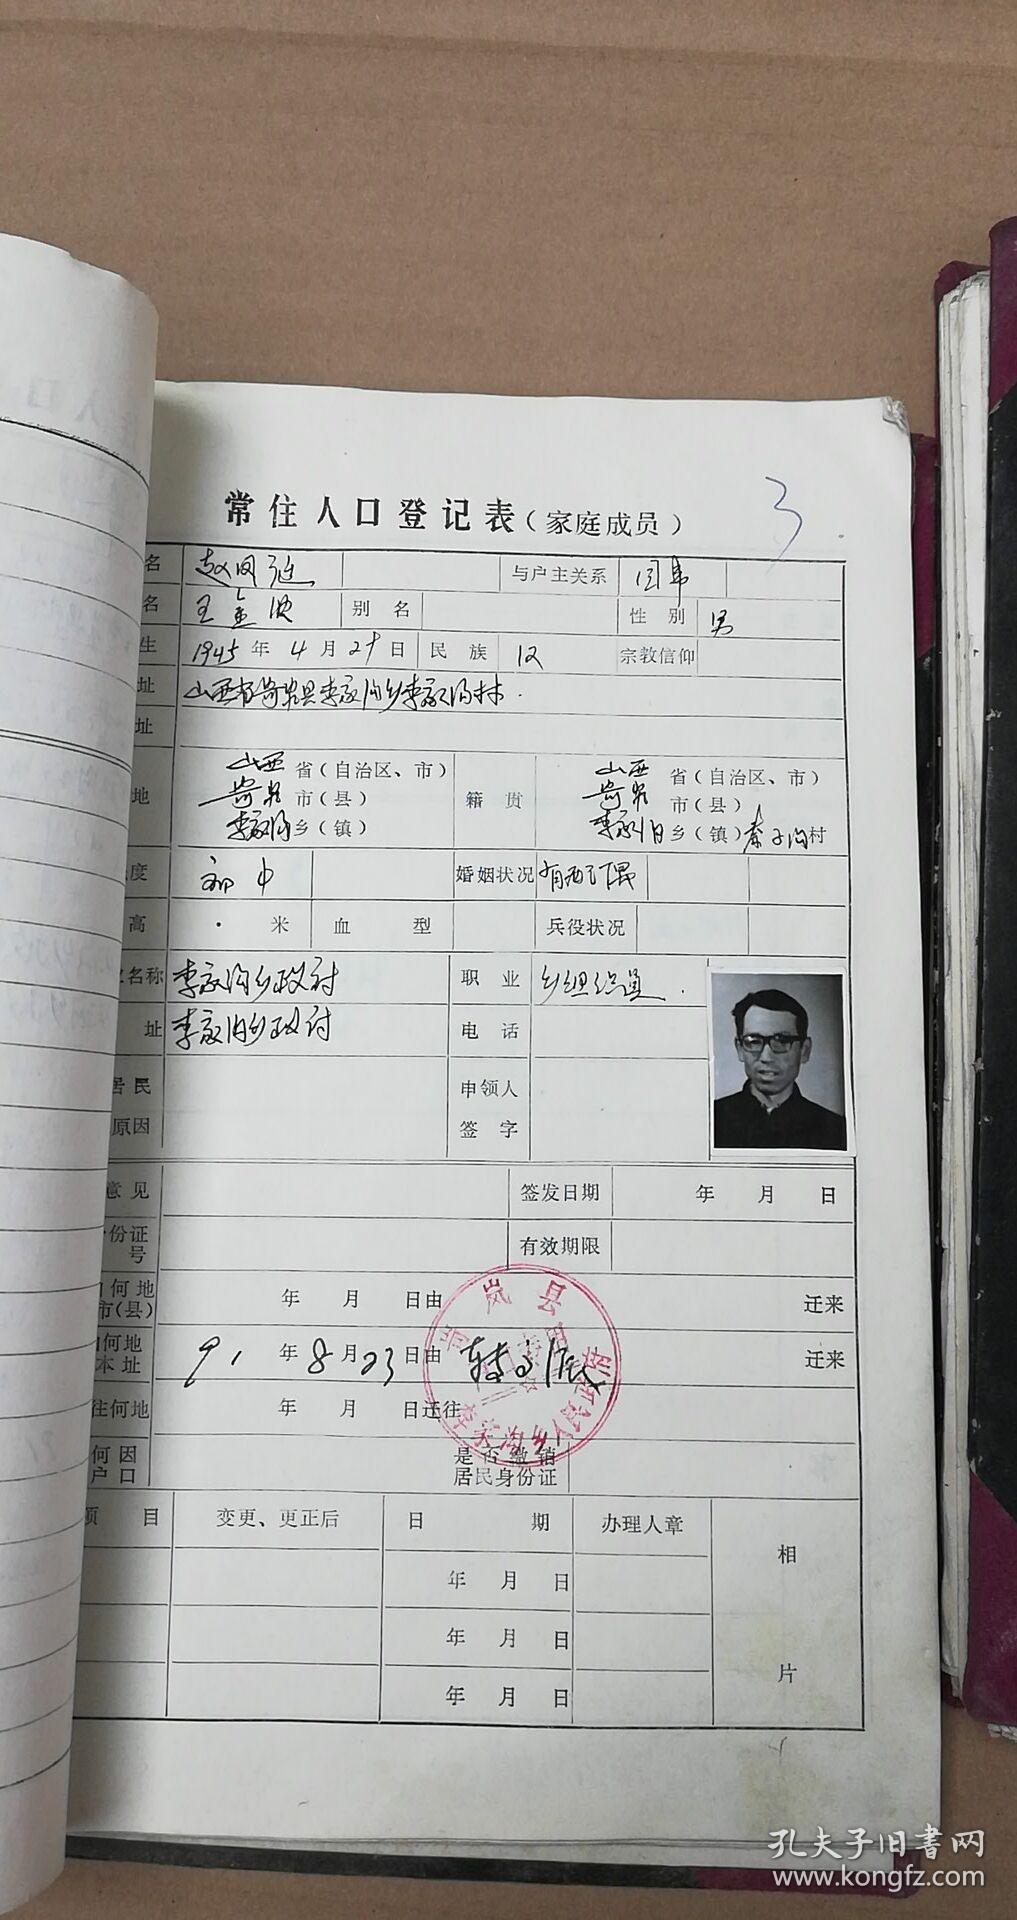 3
常住人口登记表（家庭成员）
名 赵 与户主关系
名 王金 别名 性别 男
生 1945年4月2 日 民族 汉 宗教信仰
址 山西省 县李家沟乡李家沟村.
址
地 山西 省（自治区、市） 籍贯 山西 省（自治区、市）
市（县） 市（县）
李家沟 乡（镇） 李家沟 乡（镇） 村
度 初中 婚姻状况 有配偶
高 · 米 血型 兵役状况
名称 李家沟乡政府 职业 乡组织员.
址 李家沟乡政府 电话
居民 申领人
原因 签字
意见 签发日期 年 月 日
份证 有效期限
号
何地 年 月 日由 迁来
市(县)
何地 91年8月23日由 迁来
本址
往何地 年 月 日迁往
何因 是否缴销
户口 居民身份证
岚县
李家沟乡人
项目 变更、更正后 日期 办理人章 相
年 月 日
年 月 日 片
年 月 日
孔夫子旧书网
www.kongfz.com